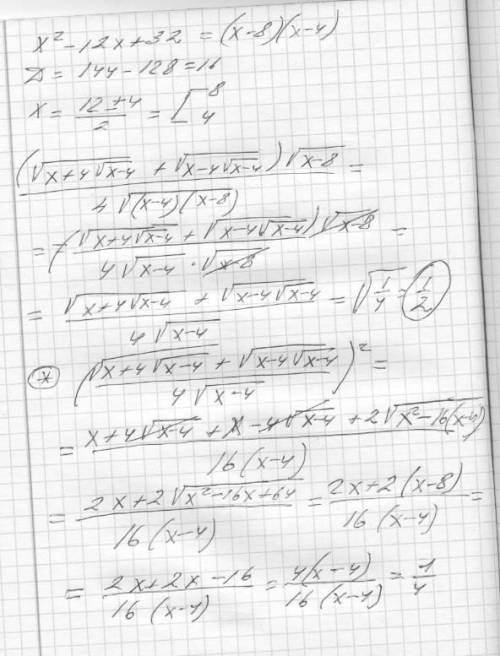 x² - 12x + 32 = (x-8)(x-4)
D = 144 - 128 = 16
x = (12 ± 4)/2 = [8; 4
((√(x+4√(x-4)) + √(x-4√(x-4)))√(x-8))/(4√((x-4)(x-8))) =
= ((√(x+4√(x-4)) + √(x-4√(x-4)))√(x-8))/(4√(x-4) · √(x-8)) =
= (√(x+4√(x-4)) + √(x-4√(x-4)))/(4√(x-4)) = √(1/4) = 1/2
(*) ((√(x+4√(x-4)) + √(x-4√(x-4)))/(4√(x-4)))² =
= (x+4√(x-4) + x - 4√(x-4) + 2√(x²-16(x-4)))/(16(x-4))
= (2x+2√(x²-16x+64))/(16(x-4)) = (2x+2(x-8))/(16(x-4)) =
= (2x+2x-16)/(16(x-4)) = (4(x-4))/(16(x-4)) = 1/4